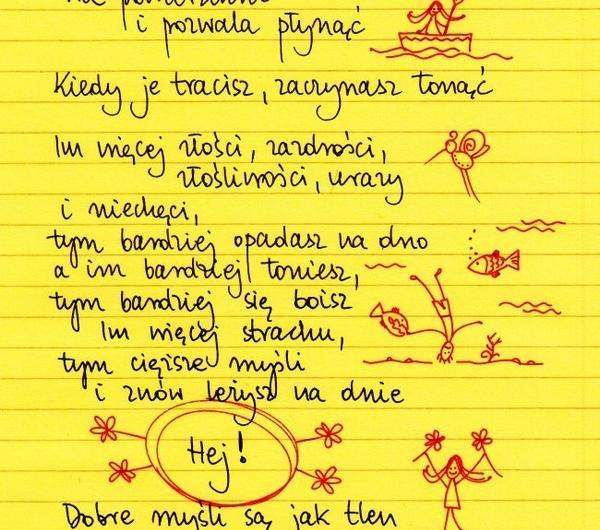 i pozwala płynąć
Kiedy je tracisz, zaczynasz tonąć
Im więcej złości, zazdrości,
złośliwości, urazy
i niechęci,
tym bardziej opadasz na dno
a im bardziej toniesz,
tym bardziej się boisz
Im więcej strachu,
tym cięższe myśli
i znów leżysz na dnie
Hej!
Dobre myśli są jak tlen